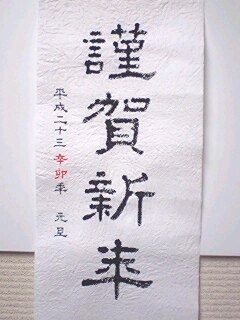 謹賀新年
平成二十三辛卯年 元旦